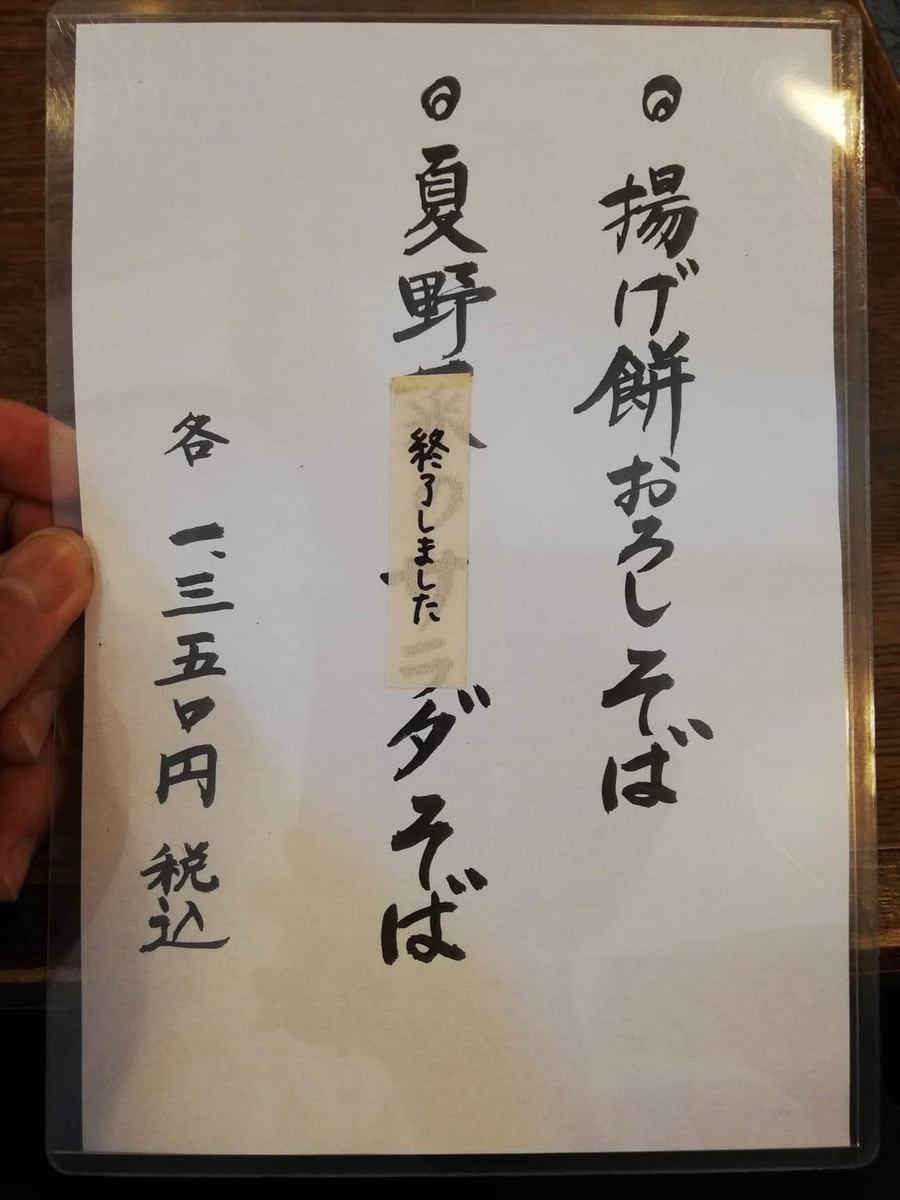 ◎揚げ餅おろしそば
◎夏野菜のサラダそば
終了しました
各 一、三五〇円 税込